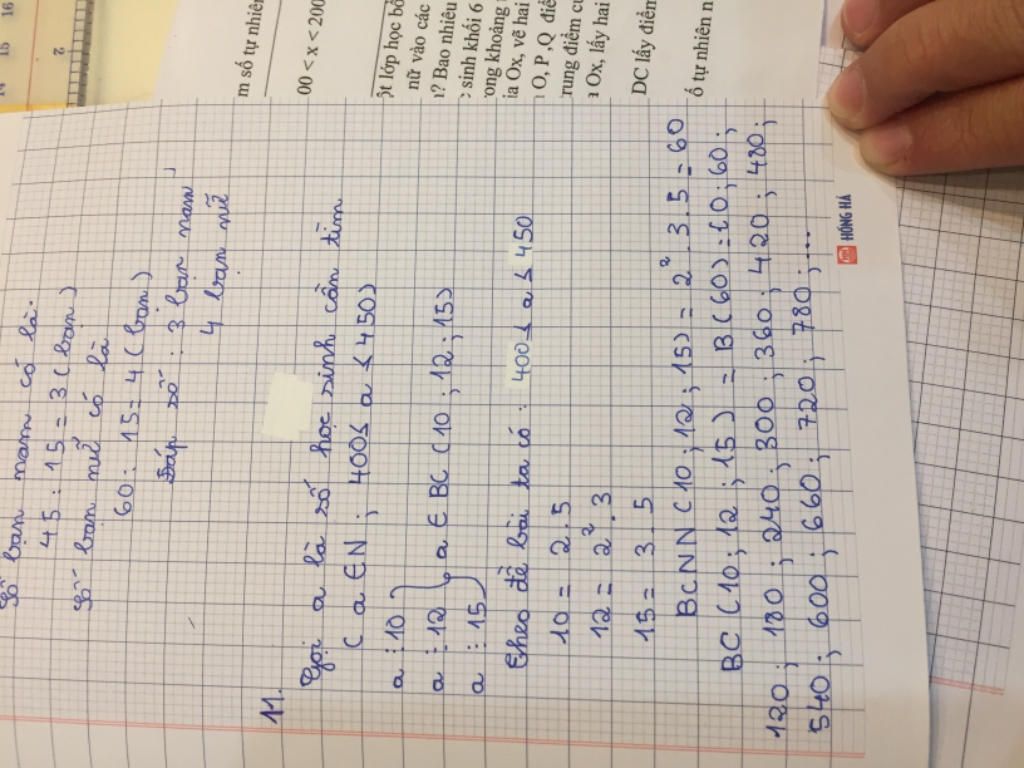 m số tự nhiên
00 < x < 200
ột lớp học bổ
nữ vào các
? Bao nhiêu
sinh khối 6
ong khoảng
ia Ox, vẽ hai
O, P, Q điể
trung điểm củ
a Ox, lấy hai
DC lấy điểm
ố tự nhiên n
Số bạn nam có là:
45 : 15 = 3 (bạn)
Số bạn nữ có là
60 : 15 = 4 (bạn)
Đáp số : 3 bạn nam
4 bạn nữ
11.
Gọi a là số học sinh cần tìm
( a ∈ N ; 400 ≤ a ≤ 450)
a ⋮ 10
a ⋮ 12 } a ∈ BC (10 ; 12 ; 15)
a ⋮ 15
Theo đề bài ta có : 400 ≤ a ≤ 450
10 = 2 . 5
12 = 2² . 3
15 = 3 . 5
BCNN (10 ; 12 ; 15) = 2² . 3 . 5 = 60
BC (10 ; 12 ; 15) = B (60) = {0 ; 60 ;
120 ; 180 ; 240 ; 300 ; 360 ; 420 ; 480 ;
540 ; 600 ; 660 ; 720 ; 780 ; ...
HỒNG HÀ
2
14 15 16